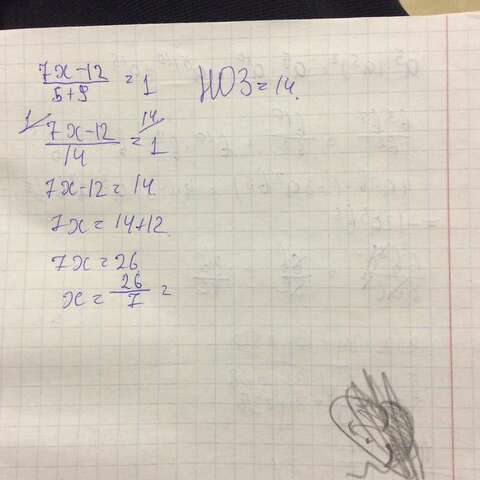 7x-12/5+9 = 1 НОЗ = 14.
1 7x-12/14 = 14 1
7x-12 = 14
7x = 14+12
7x = 26
x = 26/7 =